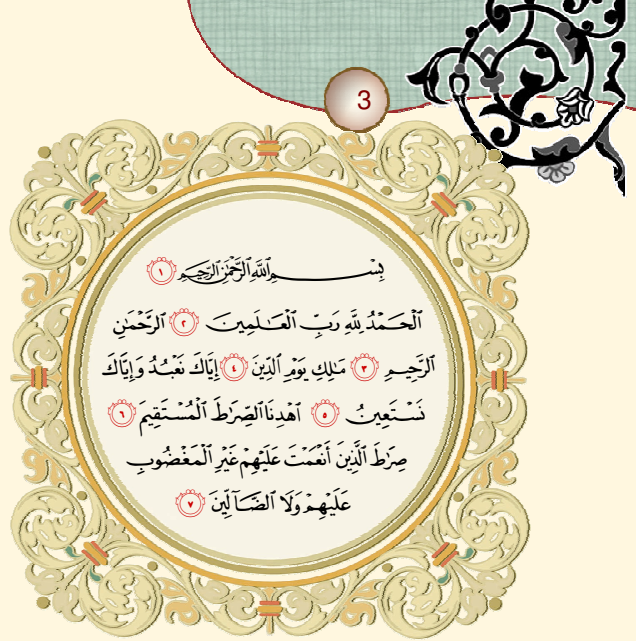 3
بِسْمِ ٱللَّهِ ٱلرَّحْمَٰنِ ٱلرَّحِيمِ ١
ٱلْحَمْدُ لِلَّهِ رَبِّ ٱلْعَٰلَمِينَ ٢ ٱلرَّحْمَٰنِ
ٱلرَّحِيمِ ٣ مَٰلِكِ يَوْمِ ٱلدِّينِ ٤ إِيَّاكَ نَعْبُدُ وَإِيَّاكَ
نَسْتَعِينُ ٥ ٱهْدِنَا ٱلصِّرَٰطَ ٱلْمُسْتَقِيمَ ٦
صِرَٰطَ ٱلَّذِينَ أَنْعَمْتَ عَلَيْهِمْ غَيْرِ ٱلْمَغْضُوبِ
عَلَيْهِمْ وَلَا ٱلضَّآلِّينَ ٧